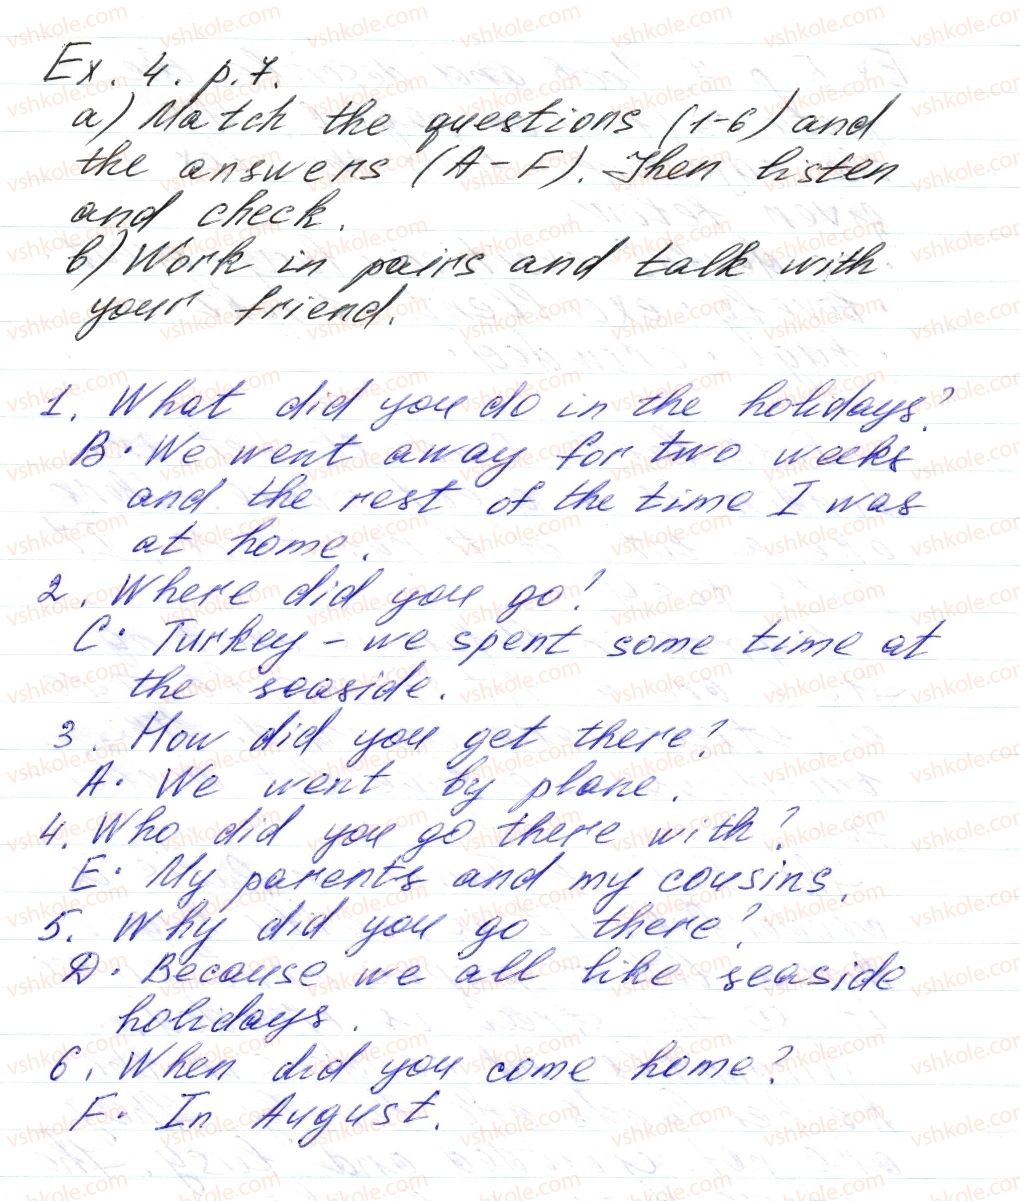 Ex. 4. p.7.
a) Match the questions (1-6) and
the answers (A-F). Then listen
and check.
b) Work in pairs and talk with
your friend.
1. What did you do in the holidays?
B. We went away for two weeks
and the rest of the time I was
at home.
2. Where did you go?
C. Turkey - we spent some time at
the seaside.
3. How did you get there?
A. We went by plane.
4. Who did you go there with?
E. My parents and my cousins.
5. Why did you go there?
D. Because we all like seaside
holidays.
6. When did you come home?
F. In August.